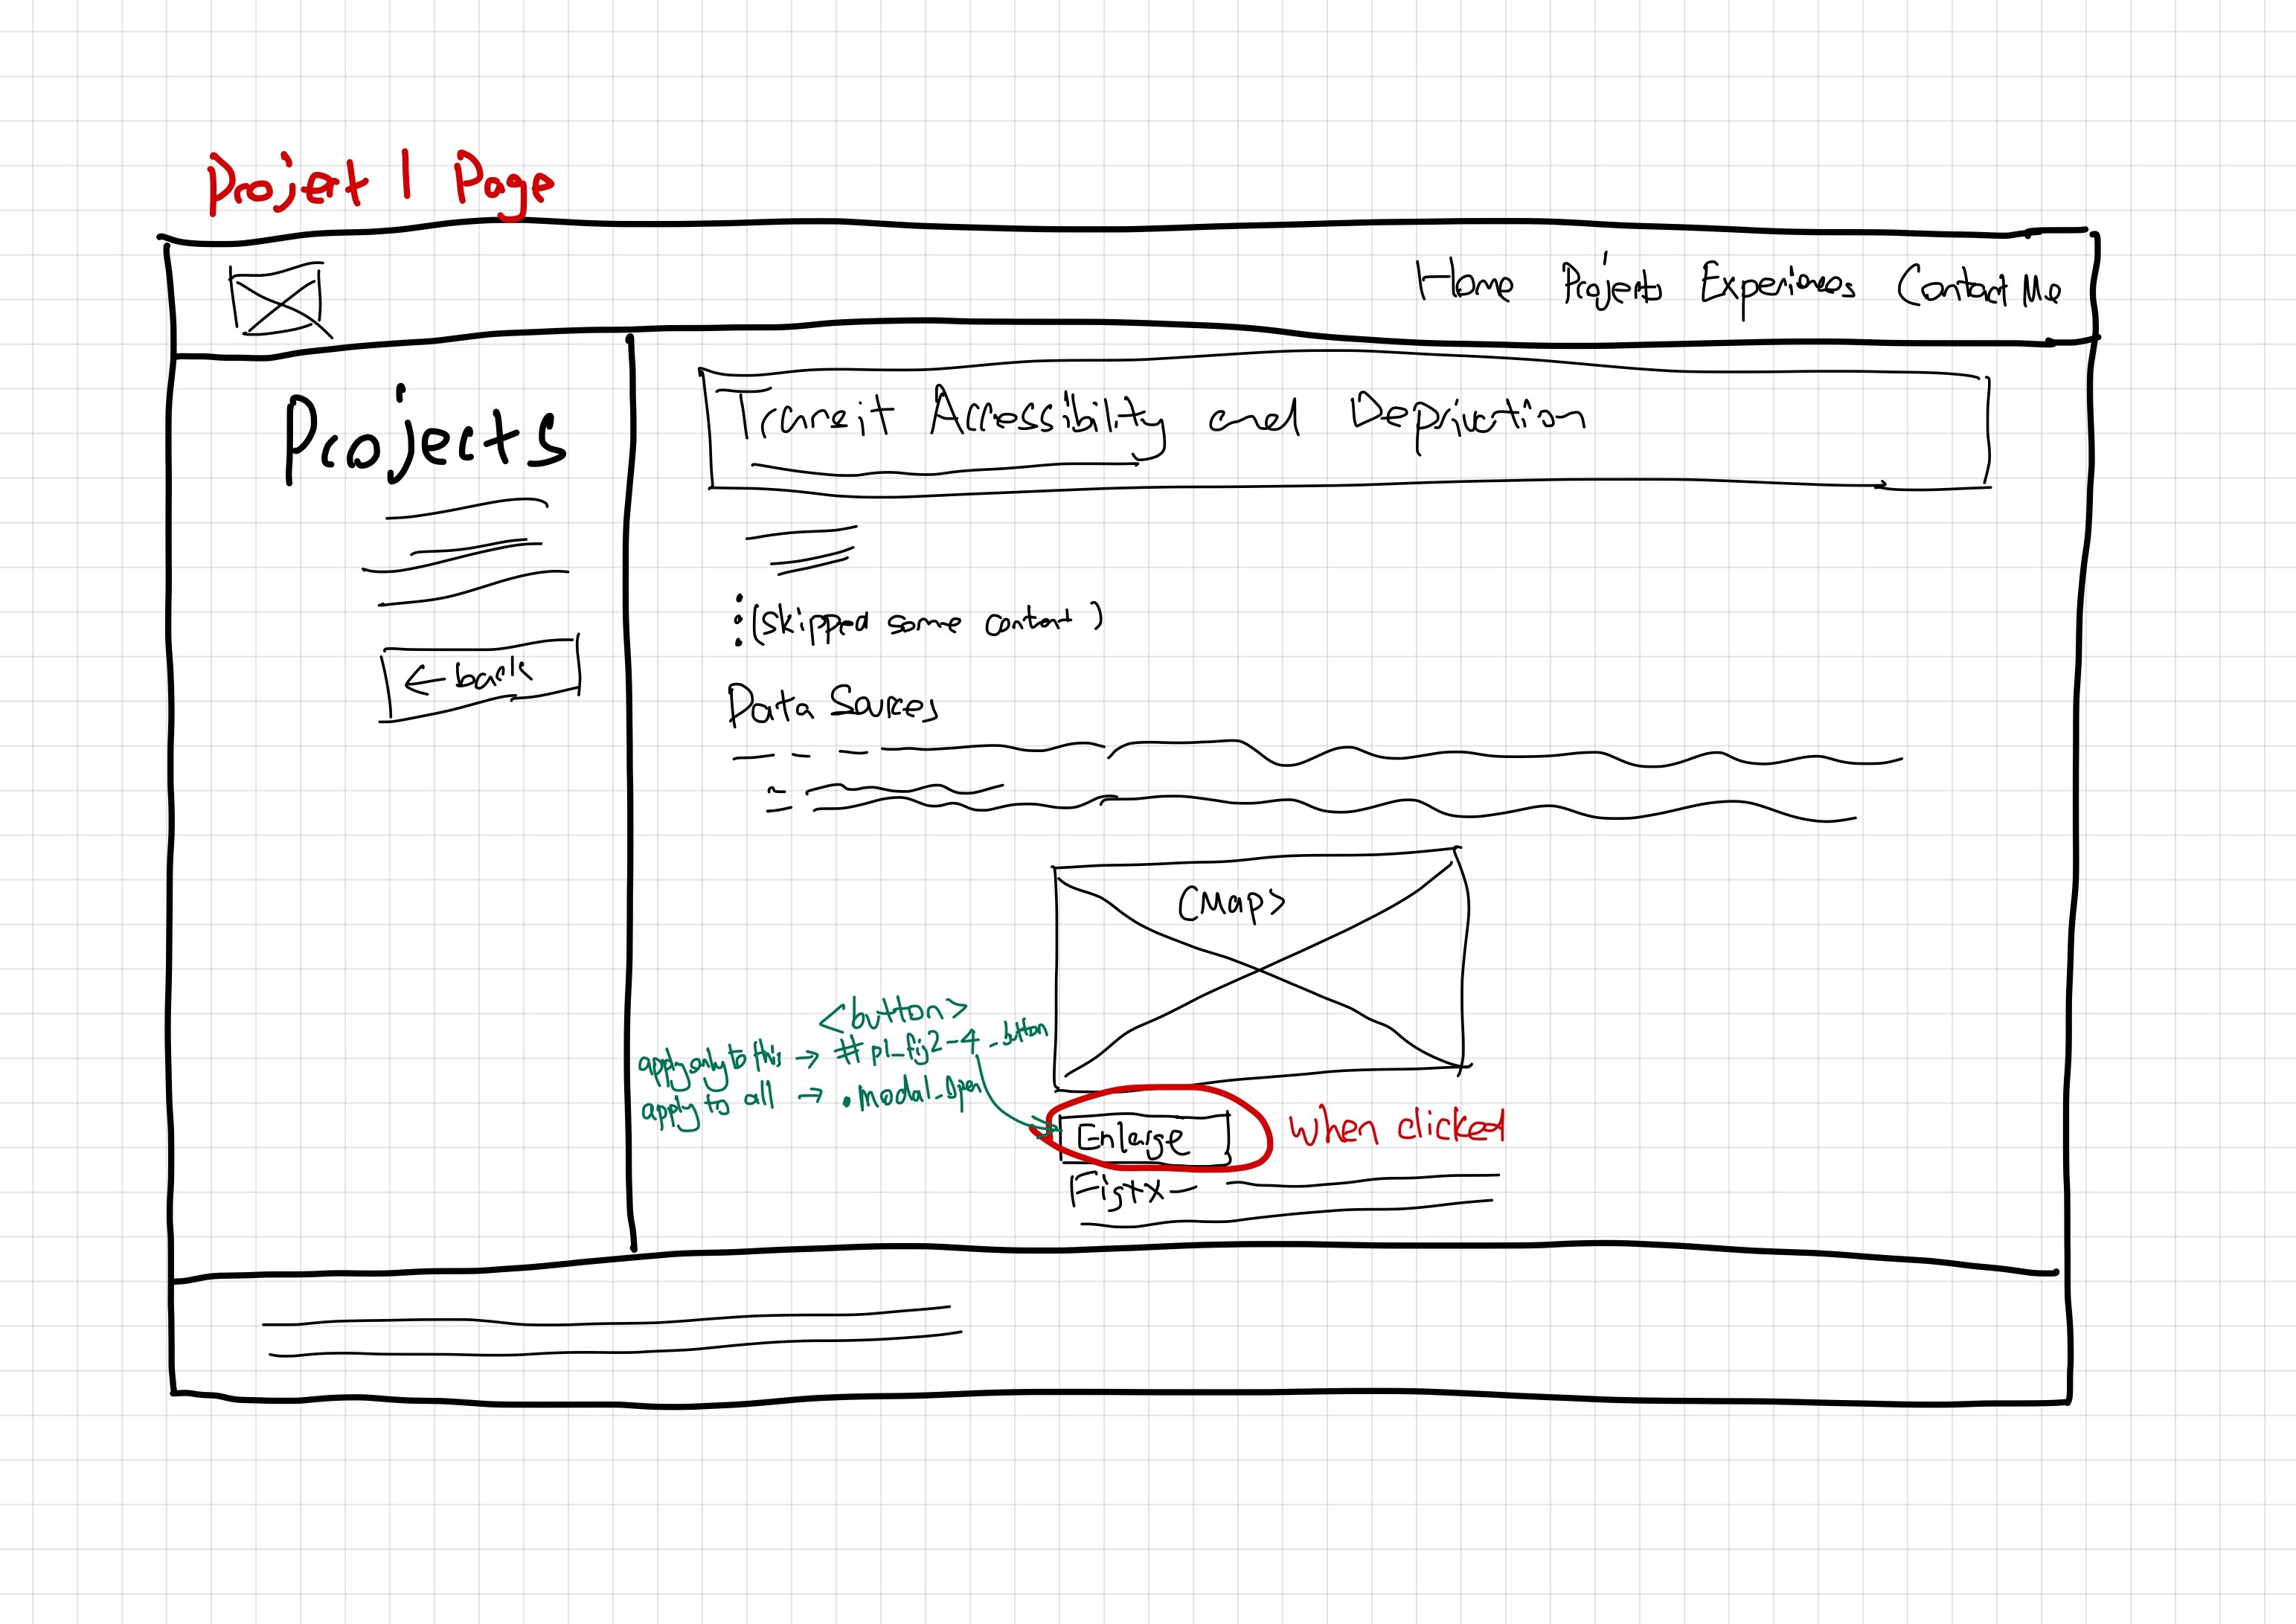 Project 1 Page
Home Projects Experiences Contact Me
Projects
Transit Accessibility and Depriction
(skipped some content)
← back
Data Sources
<Map>
<button>
apply only to this → #p1_fig2-4_button
apply to all → .modal_open
Enlarge
when clicked
Fig+x-